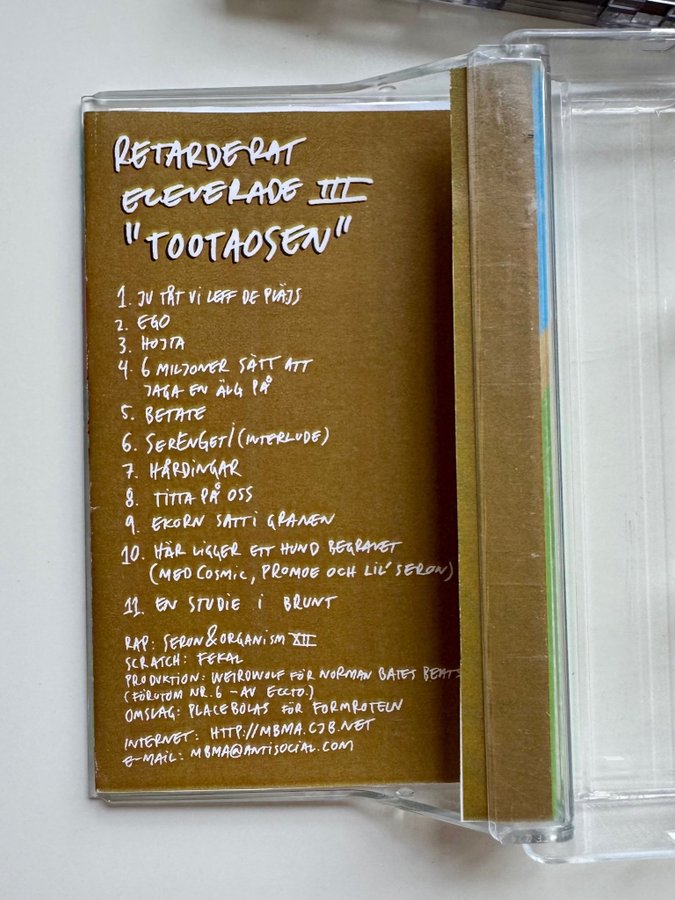 RETARDERAT
ELEVERADE III
"TOOTAOSEN"
1. JU TÅT VI LEFF DE PLÄJS
2. EGO
3. HOJTA
4. 6 MILJONER SÄTT ATT
JAGA EN ÄLG PÅ
5. BETATE
6. SERENGETI (INTERLUDE)
7. HÅRDINGAR
8. TITTA PÅ OSS
9. EKORN SATT I GRANEN
10. HÄR LIGGER ETT HUND BEGRAVET
(MED COSMIC, PROMOE OCH LIL' SERON)
11. EN STUDIE I BRUNT
RAP: SERON & ORGANISM XII
SCRATCH: FEKAL
PRODUKTION: WEIRDWOLF FÖR NORMAN BATES BEATS
(FÖRUTOM NR. 6 - AV ECCTO.)
OMSLAG: PLACEBOLAS FÖR FORMROTELN
INTERNET: HTTP://MBMA.CJB.NET
E-MAIL: MBMA@ANTISOCIAL.COM